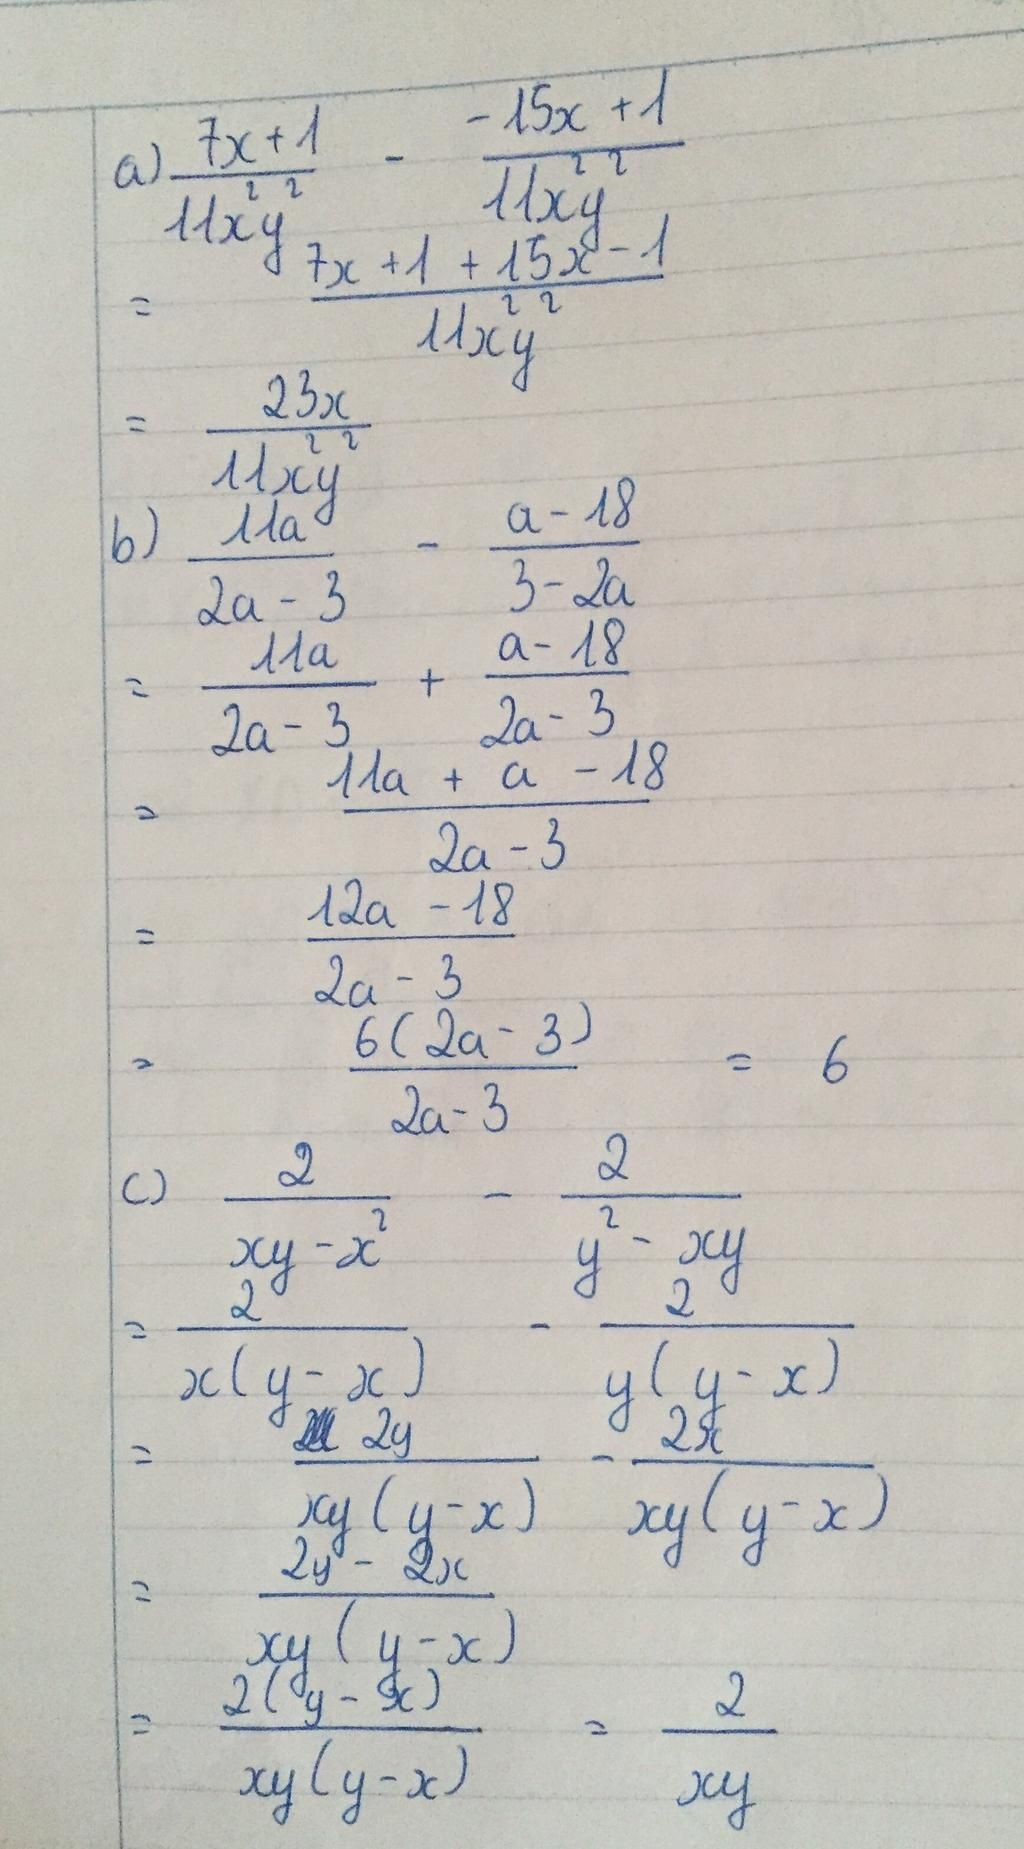 a) (7x+1)/(11x²y²) - (-15x+1)/(11x²y²)
= (7x+1+15x-1)/(11x²y²)
= 23x/(11x²y²)
b) 11a/(2a-3) - (a-18)/(3-2a)
= 11a/(2a-3) + (a-18)/(2a-3)
= (11a+a-18)/(2a-3)
= (12a-18)/(2a-3)
= 6(2a-3)/(2a-3) = 6
c) 2/(xy-x²) - 2/(y²-xy)
= 2/(x(y-x)) - 2/(y(y-x))
= 2y/(xy(y-x)) - 2x/(xy(y-x))
= (2y-2x)/(xy(y-x))
= 2(y-x)/(xy(y-x)) = 2/(xy)